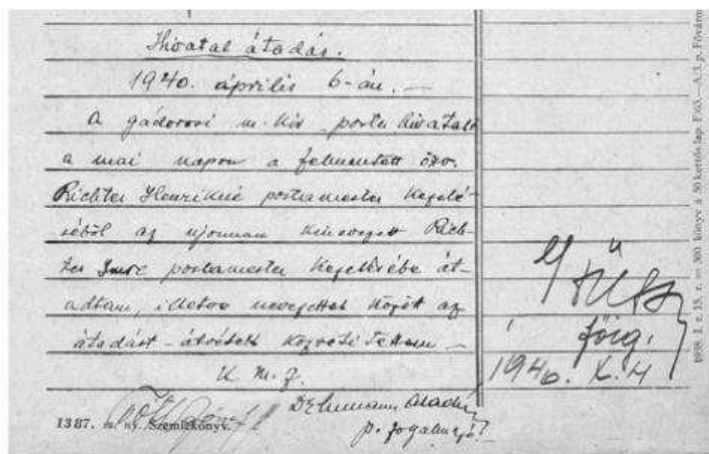 Hivatal átadás.
1940. április 6-án. —
A gádorosi m. kir. posta hivatalt
a mai napon a felmentett özv.
Richter Henrikné postamester kezelé-
séből az ujonnan kinevezett Rich-
ter Imre postamester kezelésébe át-
adtam, illetve nevezettek között az
átadást - átvételt közvetitettem. —
K. m. f.
Aladár
p. fogalmazó
főig.
1940. X. 4
1387. m. ny. Szemlekönyv.
1938. I. z. 15. r. — 300 könyv á 50 kettős lap. F. 63. — A. 3. p. Főváros